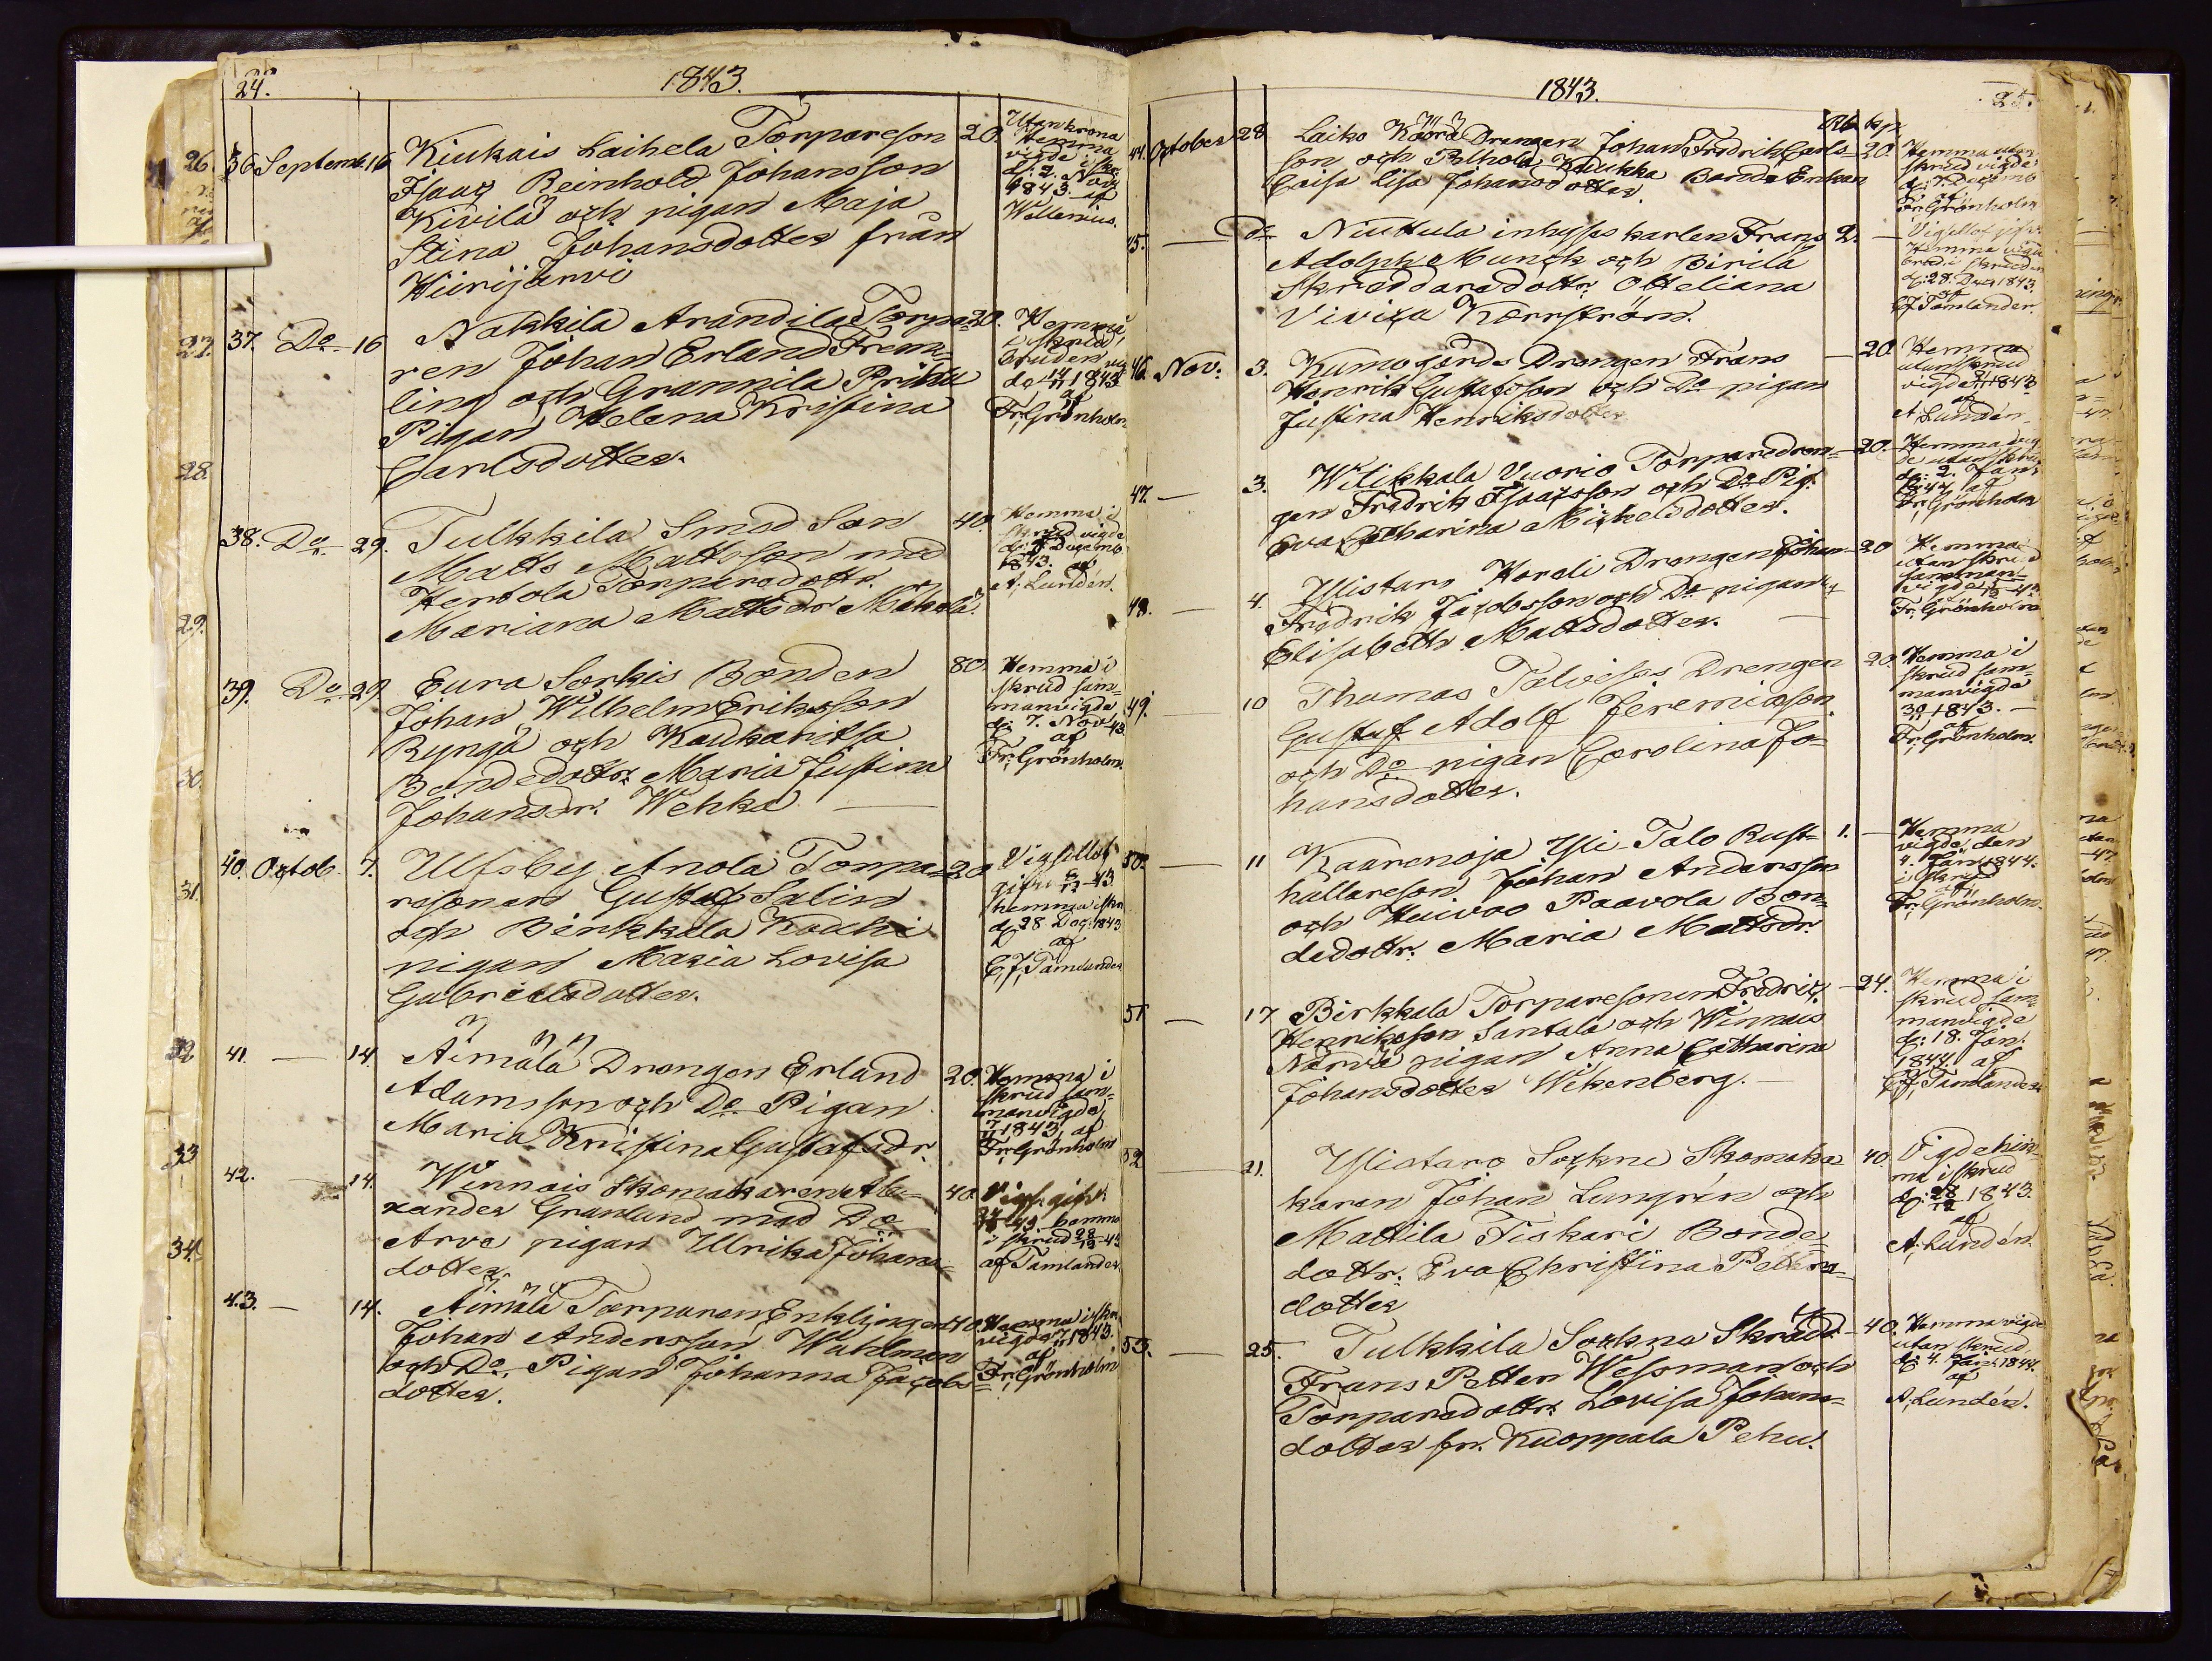 24.
1843.
36 Septemb. 16 Kiukais Laihela Torpareson 20.
Isaac Reinhold Johansson
Kivilä och pigan Maja
Stina Johansdotter från
Wiirijärvi
Utan krona
hemma
vigde i skr.
d: 2. Nov
1843. af
Wellenius.
37. Do 16 Nakkila Arandila Torpa= 20.
ren Johan Erland Frem=
ling och Grannila Prihti
Pigan Helena Kristina
Carlsdotter.
Hemma,
i skrud,
bruden vig
d. 14/11 1843
af
Fr: Grönholm
38. Do 29. Tulkkila Smed Son 40.
Matts Mattsson med
Hervola Torparedottr.
Mariana Mattsdr Mäkelä.
Hemma i
skrud vigde
d: Decemb
1843. af
A. Lundén.
39. Do 29 Eura Sorkis Bonden 80.
Johan Wilhelm Eriksson
Ryngä och Kaukaritsa
Bondedottr. Maria Justina
Johansdr. Wehka
Hemma i
skrud sam=
manvigde
d: 7. Nov. 43
af
Fr: Grönholm.
40. Octob. 7. Ulfsby Anola Torpa= 20
resonen Gustaf Salin
och Birkkala Knuhi
pigan Maria Lovisa
Gabrielsdotter.
Vigsellof
gifvit /12 43.
hemma i skr
d. 28 Dec. 1843
af
C. J. Tamlander
41. — 14. Äimälä Drängen Erland 20.
Adamsson och Do Pigan
Maria Kristina Gustafsdr.
Hemma i
skrud sam=
manvigde
1843, af
Fr: Grönholm
42. — 14. Winnais Skomakaren Ale= 40.
xander Granlund med Do
Arve pigan Ulrika Johans=
dotter.
Vigs. gifvit
43. hemma
i skrud 28/12 43
af Tamlander
43. — 14. Äimälä Torparen Enklingen 40.
Johan Andersson Wahlman
och Do. Pigan Johanna Jacobs=
dotter.
Hemma i skr.
vigde 1843.
af
Fr: Grönholm
1843.
25.
Rb. kp.
44. October 28 Laiko Kööri Drengen Johan Fredrik Carls= 20.
son och Pelhola Kaukka Bonde Enkan
Caisa Lisa Johansdotter.
Hemma utan
skrud vigde
d: 7. Decemb
af
Fr: Grönholm
45. — Do Niuttula inhyses karlen Frans 2. —
Adolph Munck och Birila
Skräddaredottr. Otteliana
Vivica Kornström.
Vigsellof gifvit
Hemma vigde
brud. i skruden
d: 28. Dec 1843
af
CJ Tamlander.
46. Nov: 3. Kumogårds Drengen Frans — 20.
Henrik Gustafsson och Do pigan
Justina Henriksdotter
Hemma
utan skrud
vigde 1843
af
A. Lundén
47. — 3. Wilikkala Vuorio Torparedren= 20.
gen Fredrik Isaacsson och Do Pig.
Eva Catharina Michelsdotter.
Hemma vig
de utan skru
d: 2. Jan:
1844 af
Fr: Grönholm
48. — 4. Ylistaro Hardi Drengen Johan 20
Fredrik Jacobsson och Do pigan
Elisabeth Mattsdotter.
Hemma
utan skrud
samman=
vigde /12 43
Fr: Grönholm
49. — 10 Thumas Talvises Drengen 20.
Gustaf Adolf Jeremiasson
och Do pigan Carolina Jo=
hansdotter.
Hemma i
skrud sam=
manvigde
30/11 1843. —
af
Fr: Grönholm.
50. — 11 Kaarenoja Yli-Talo Rust= 1. —
hållareson Johan Andersson
och Huivoo Paavola Bon=
dedottr: Maria Mattsdr.
Hemma
vigde, den
4. Jan. 1844.
i skrud
af
Fr: Grönholm.
51 — 17 Birkkala Torparesonen Fredric — 24.
Henriksson Santala och Winnais
Närvä pigan Anna Catharina
Johansdotter Wikenberg.
Hemma i
skrud sam=
manvigde
d: 18. Jan.
1844. af
CJ, Tamlander
52 — 21. Ylistaro Sockne Skomaka 40.
karen Johan Lungrén och
Mattila Fiskari Bonde=
dottr. Eva Christina Petters=
dotter
Vigde hem=
ma i skrud
d: 28/12 1843.
af
A. Lundén.
53. — 25. Tulkkila Sockne Skrädd. — 40.
Frans Petter Wessman och
Torparedottr. Lovisa Johans=
dotter fr. Kuoppala Pehu.
Hemma vigde
utan skrud,
d: 4. Jan. 1844.
af
A. Lundén.
26.
27.
28.
29.
30.
31.
32
33
34.